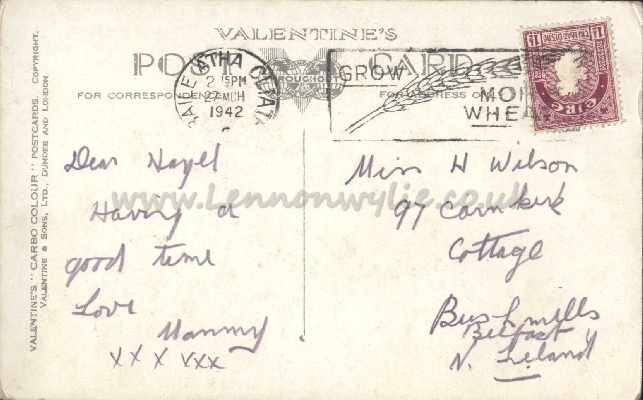 VALENTINE'S
POST CARD
FOR CORRESPONDENCE
FOR ADDRESS ONLY
BAILE ÁTHA CLIATH
2 15PM
27 MCH
1942
GROW
MORE
WHEAT
ÉIRE
VALENTINE'S "CARBO COLOUR" POSTCARDS. COPYRIGHT.
VALENTINE & SONS, LTD., DUNDEE AND LONDON
Dear Hazel
Having a
good time
Love
Mammy
X X X XXX
Miss H Wilson
97 Carnkirk
Cottage
Bushmills
Belfast
N. Ireland
www.Lennonwylie.co.uk